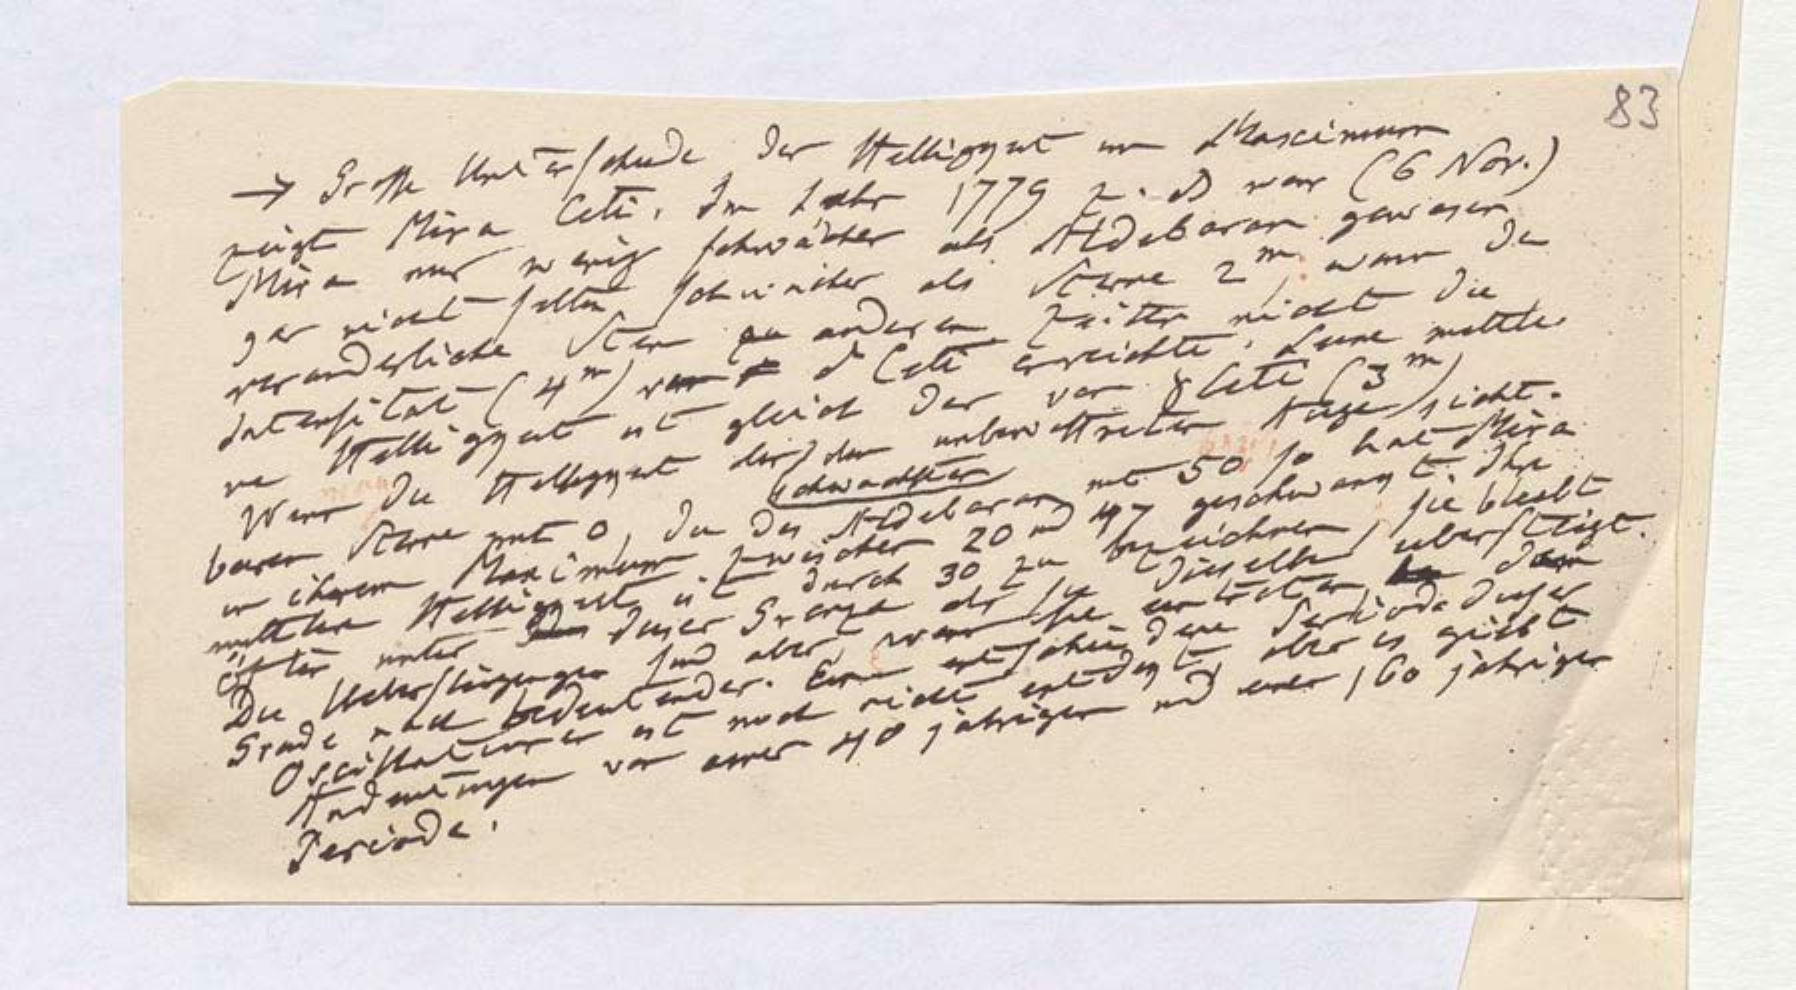 83
→ Grosse Unterschiede der Helligkeit im Maximum
zeigt Mira Ceti. Im Jahr 1779 z. B war (6 Nov.)
Mira nur wenig schwächer als Aldebaran gewesen
gar nicht selten schwächer als Sterne 2m, wenn der
veränderliche Stern zu anderen Zeiten nicht die
Intensität (4m) von δ Ceti erreichte. Seine mittle-
re Helligkeit ist gleich der von γ Ceti (3m)
Wenn die Helligkeit der dem unbewaffneten Auge sicht-
schwächsten
baren Sterne mit 0, die des Aldebaran mit 50 so hat Mira
in ihrem Maximum zwischen 20 und 47 geschwankt. Ihre
mittlere Helligkeit ist durch 30 zu bezeichnen, sie bleibt
öfter unter dieser Grenze als sie dieselbe übersteigt.
Die Uebersteigungen sind aber, wenn sie eintreten dem
Grade nach bedeutender. Eine entschiedene Periode dieser
Oscillationen ist noch nicht entdeckt, aber es giebt
Andeutungen von einer 40 jährigen und einer 160 jährigen
Periode.